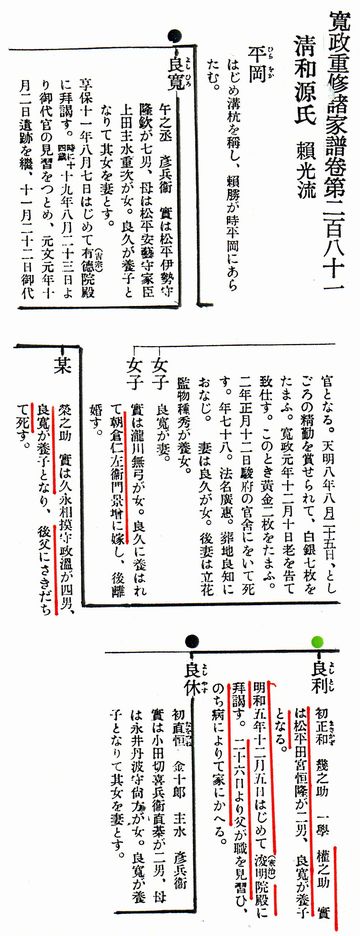 寬政重修諸家譜卷第二百八十一
淸和源氏 賴光流
平岡
ひらをか
はじめ溝杭を稱し、賴勝が時平岡にあら
たむ。
良寬
よしひろ
午之丞 彥兵衞 實は松平伊勢守
隆欽が七男、母は松平安藝守家臣
上田主水重次が女。良久が養子と
なりて其女を妻とす。
享保十一年八月七日はじめて有德院殿
(吉宗)
に拜謁す。時に十四歲 十九年八月二十三日よ
り御代官の見習をつとめ、元文元年十
月二日遺跡を繼、十一月二十二日御代
官となる。天明八年八月二十五日、とし
ごろの精勤を賞せられて、白銀七枚を
たまふ。寬政元年十二月十日老を告て
致仕す。このとき黃金二枚をたまふ。
二年正月十二日駿府の官舍にをいて死
す。年七十八。法名廣惠。葬地良知に
おなじ。 妻は良久が女。後妻は立花
監物種秀が養女。
女子 良寬が妻。
女子 實は瀧川無弓が女。良久に養はれ
て朝倉仁左衞門景增に嫁し、後離
婚す。
某
榮之助 實は久永相摸守政溫が四男、
良寬が養子となり、後父にさきだち
て死す。
良利
よしとし
初正和 幾之助 一學 權之助 實
まさかず
は松平田宮恒隆が二男、良寬が養子
となる。
明和五年十二月五日はじめて浚明院殿に
(家治)
拜謁す。二十六日より父が職を見習ひ、
のち病によりて家にかへる。
良休
よしやす
初直恒 金十郎 主水 彥兵衞
なをつね
實は小田切喜兵衞直棊が二男、母
は永井丹波守尙方が女。良寬が養
子となりて其女を妻とす。